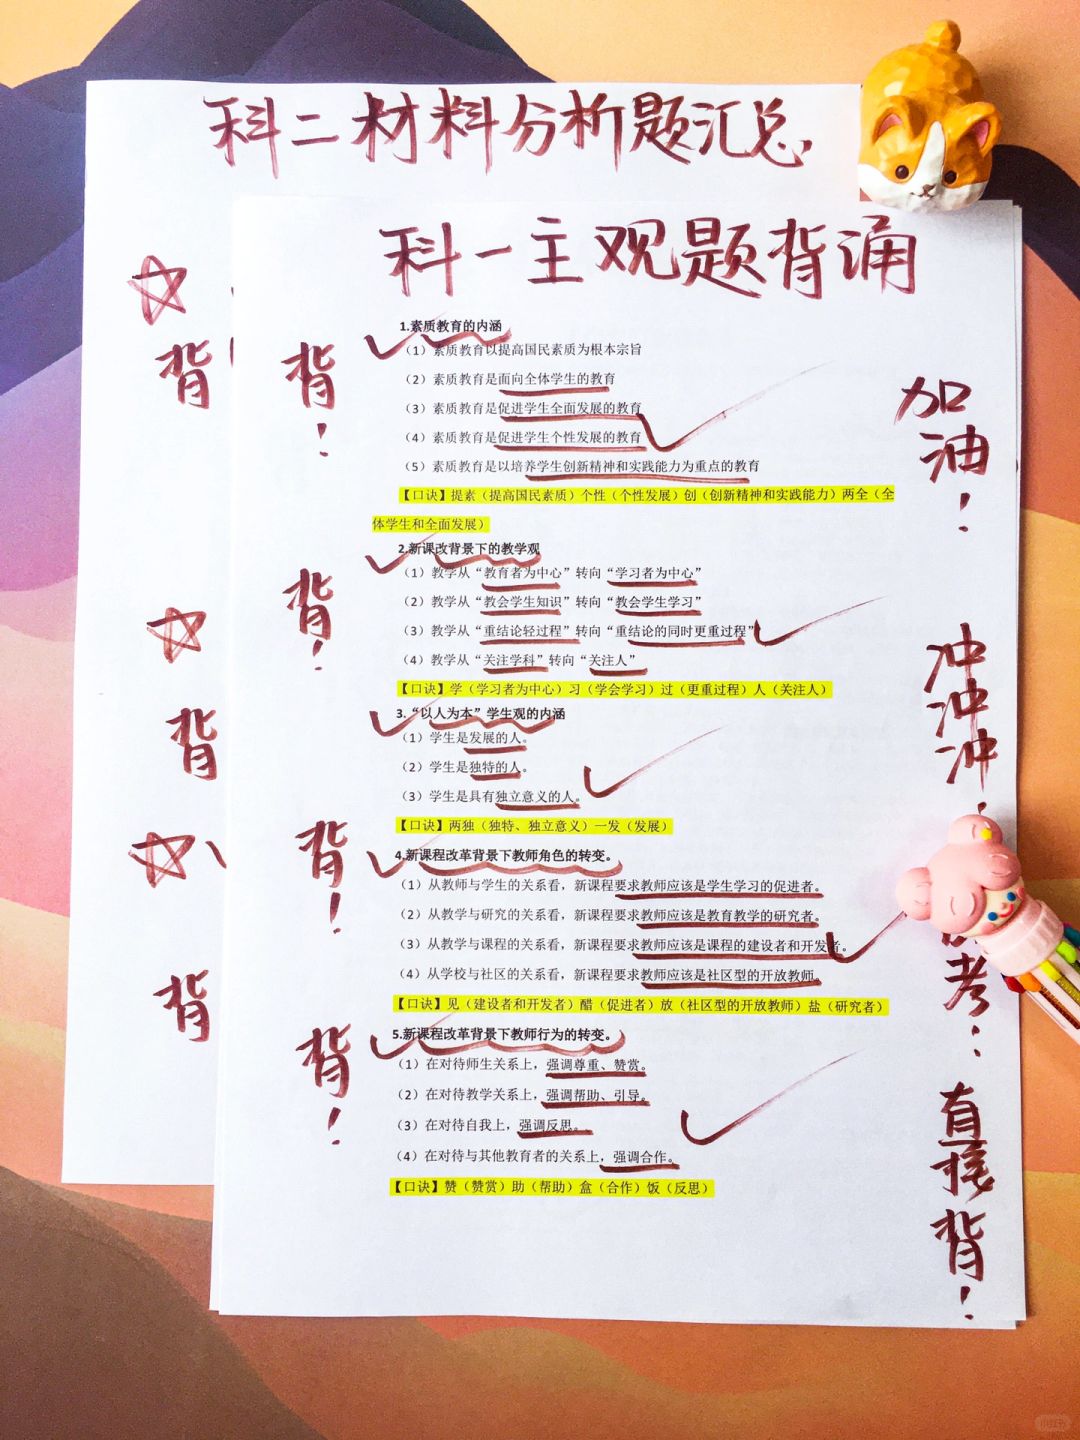 科二材料分析题汇总
科一主观题背诵
1.素质教育的内涵
（1）素质教育以提高国民素质为根本宗旨
（2）素质教育是面向全体学生的教育
（3）素质教育是促进学生全面发展的教育
（4）素质教育是促进学生个性发展的教育
（5）素质教育是以培养学生创新精神和实践能力为重点的教育
【口诀】提素（提高国民素质）个性（个性发展）创（创新精神和实践能力）两全（全
体学生和全面发展）
2.新课改背景下的教学观
（1）教学从“教育者为中心”转向“学习者为中心”
（2）教学从“教会学生知识”转向“教会学生学习”
（3）教学从“重结论轻过程”转向“重结论的同时更重过程”
（4）教学从“关注学科”转向“关注人”
【口诀】学（学习者为中心）习（学会学习）过（更重过程）人（关注人）
3.“以人为本”学生观的内涵
（1）学生是发展的人。
（2）学生是独特的人。
（3）学生是具有独立意义的人。
【口诀】两独（独特、独立意义）一发（发展）
4.新课程改革背景下教师角色的转变。
（1）从教师与学生的关系看，新课程要求教师应该是学生学习的促进者。
（2）从教学与研究的关系看，新课程要求教师应该是教育教学的研究者。
（3）从教学与课程的关系看，新课程要求教师应该是课程的建设者和开发者。
（4）从学校与社区的关系看，新课程要求教师应该是社区型的开放教师。
【口诀】见（建设者和开发者）醋（促进者）放（社区型的开放教师）盐（研究者）
5.新课程改革背景下教师行为的转变。
（1）在对待师生关系上，强调尊重、赞赏。
（2）在对待教学关系上，强调帮助、引导。
（3）在对待自我上，强调反思。
（4）在对待与其他教育者的关系上，强调合作。
【口诀】赞（赞赏）助（帮助）盒（合作）饭（反思）
背
背
背
背！
背！
背！
背！
加油！
冲冲冲！
考：
直接背！
小红书